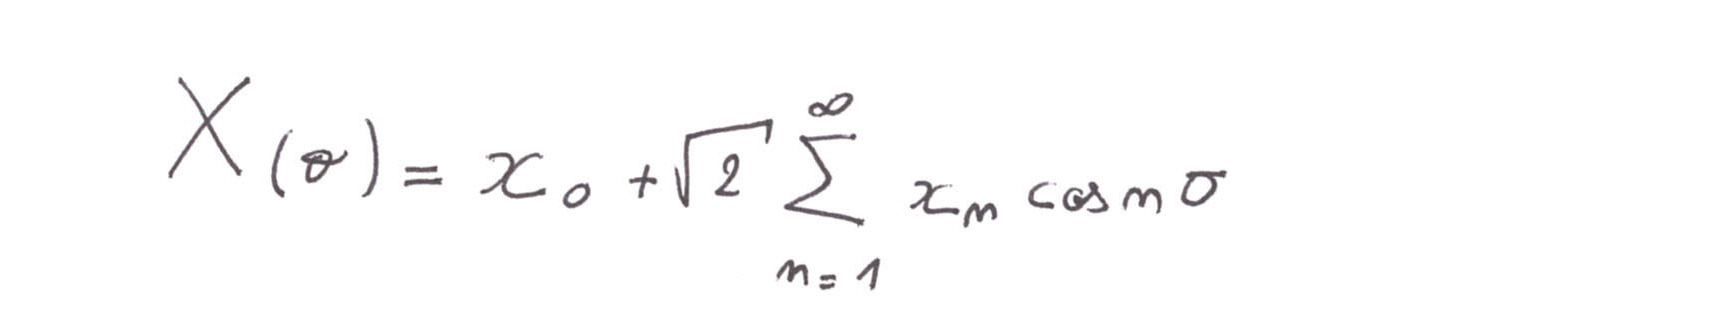 X(σ) = x₀ + √2 ∑_{n=1}^{∞} xₙ cos nσ